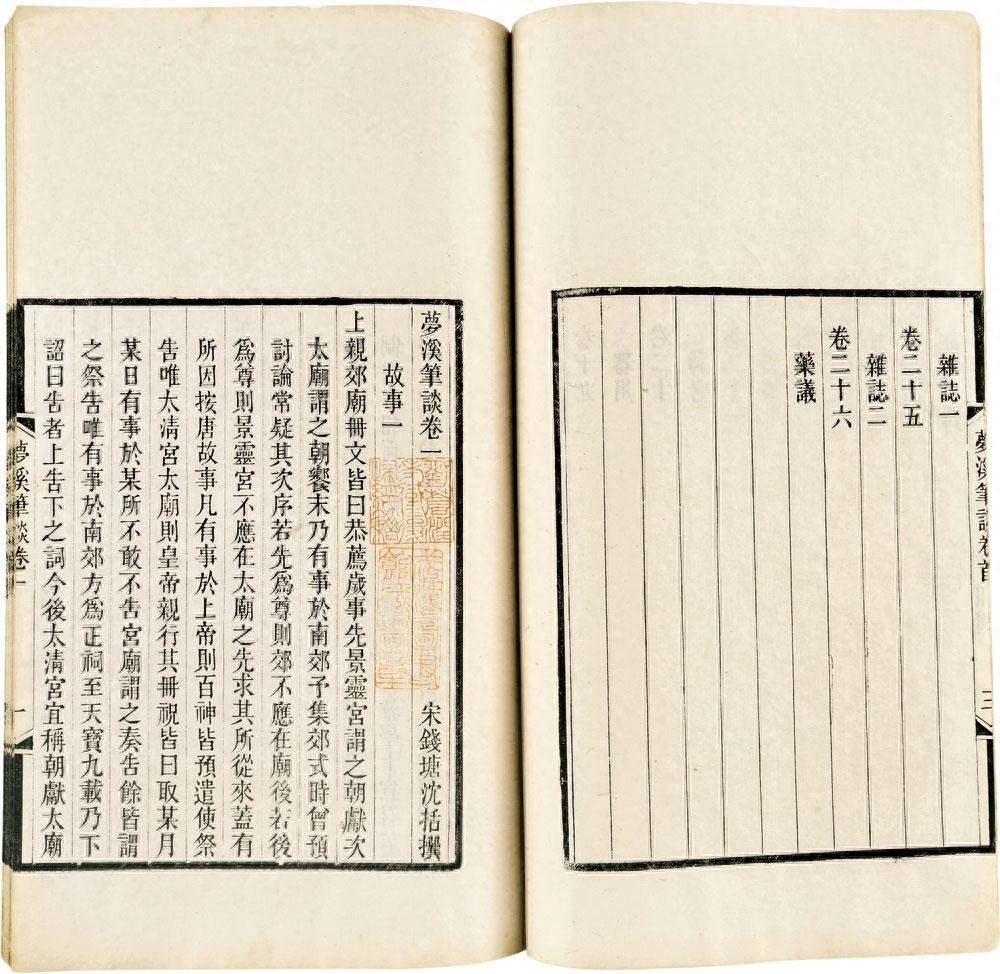 雜誌一
卷二十五
雜誌二
卷二十六
藥議
夢溪筆談卷首
三
夢溪筆談卷一
宋錢塘沈括撰
故事一
上親郊廟冊文皆曰恭薦歲事先景靈宮謂之朝獻次
太廟謂之朝饗末乃有事於南郊予集郊式時曾預
討論常疑其次序若先為尊則郊不應在廟後若後
為尊則景靈宮不應在太廟之先求其所從來蓋有
所因按唐故事凡有事於上帝則百神皆預遣使祭
告唯太清宮太廟則皇帝親行其冊祝皆曰取某月
某日有事於某所不敢不告宮廟謂之奏告餘皆謂
之祭告唯有事於南郊方為正祠至天寶九載乃下
詔曰告者上告下之詞今後太清宮宜稱朝獻太廟
夢溪筆談卷一
一